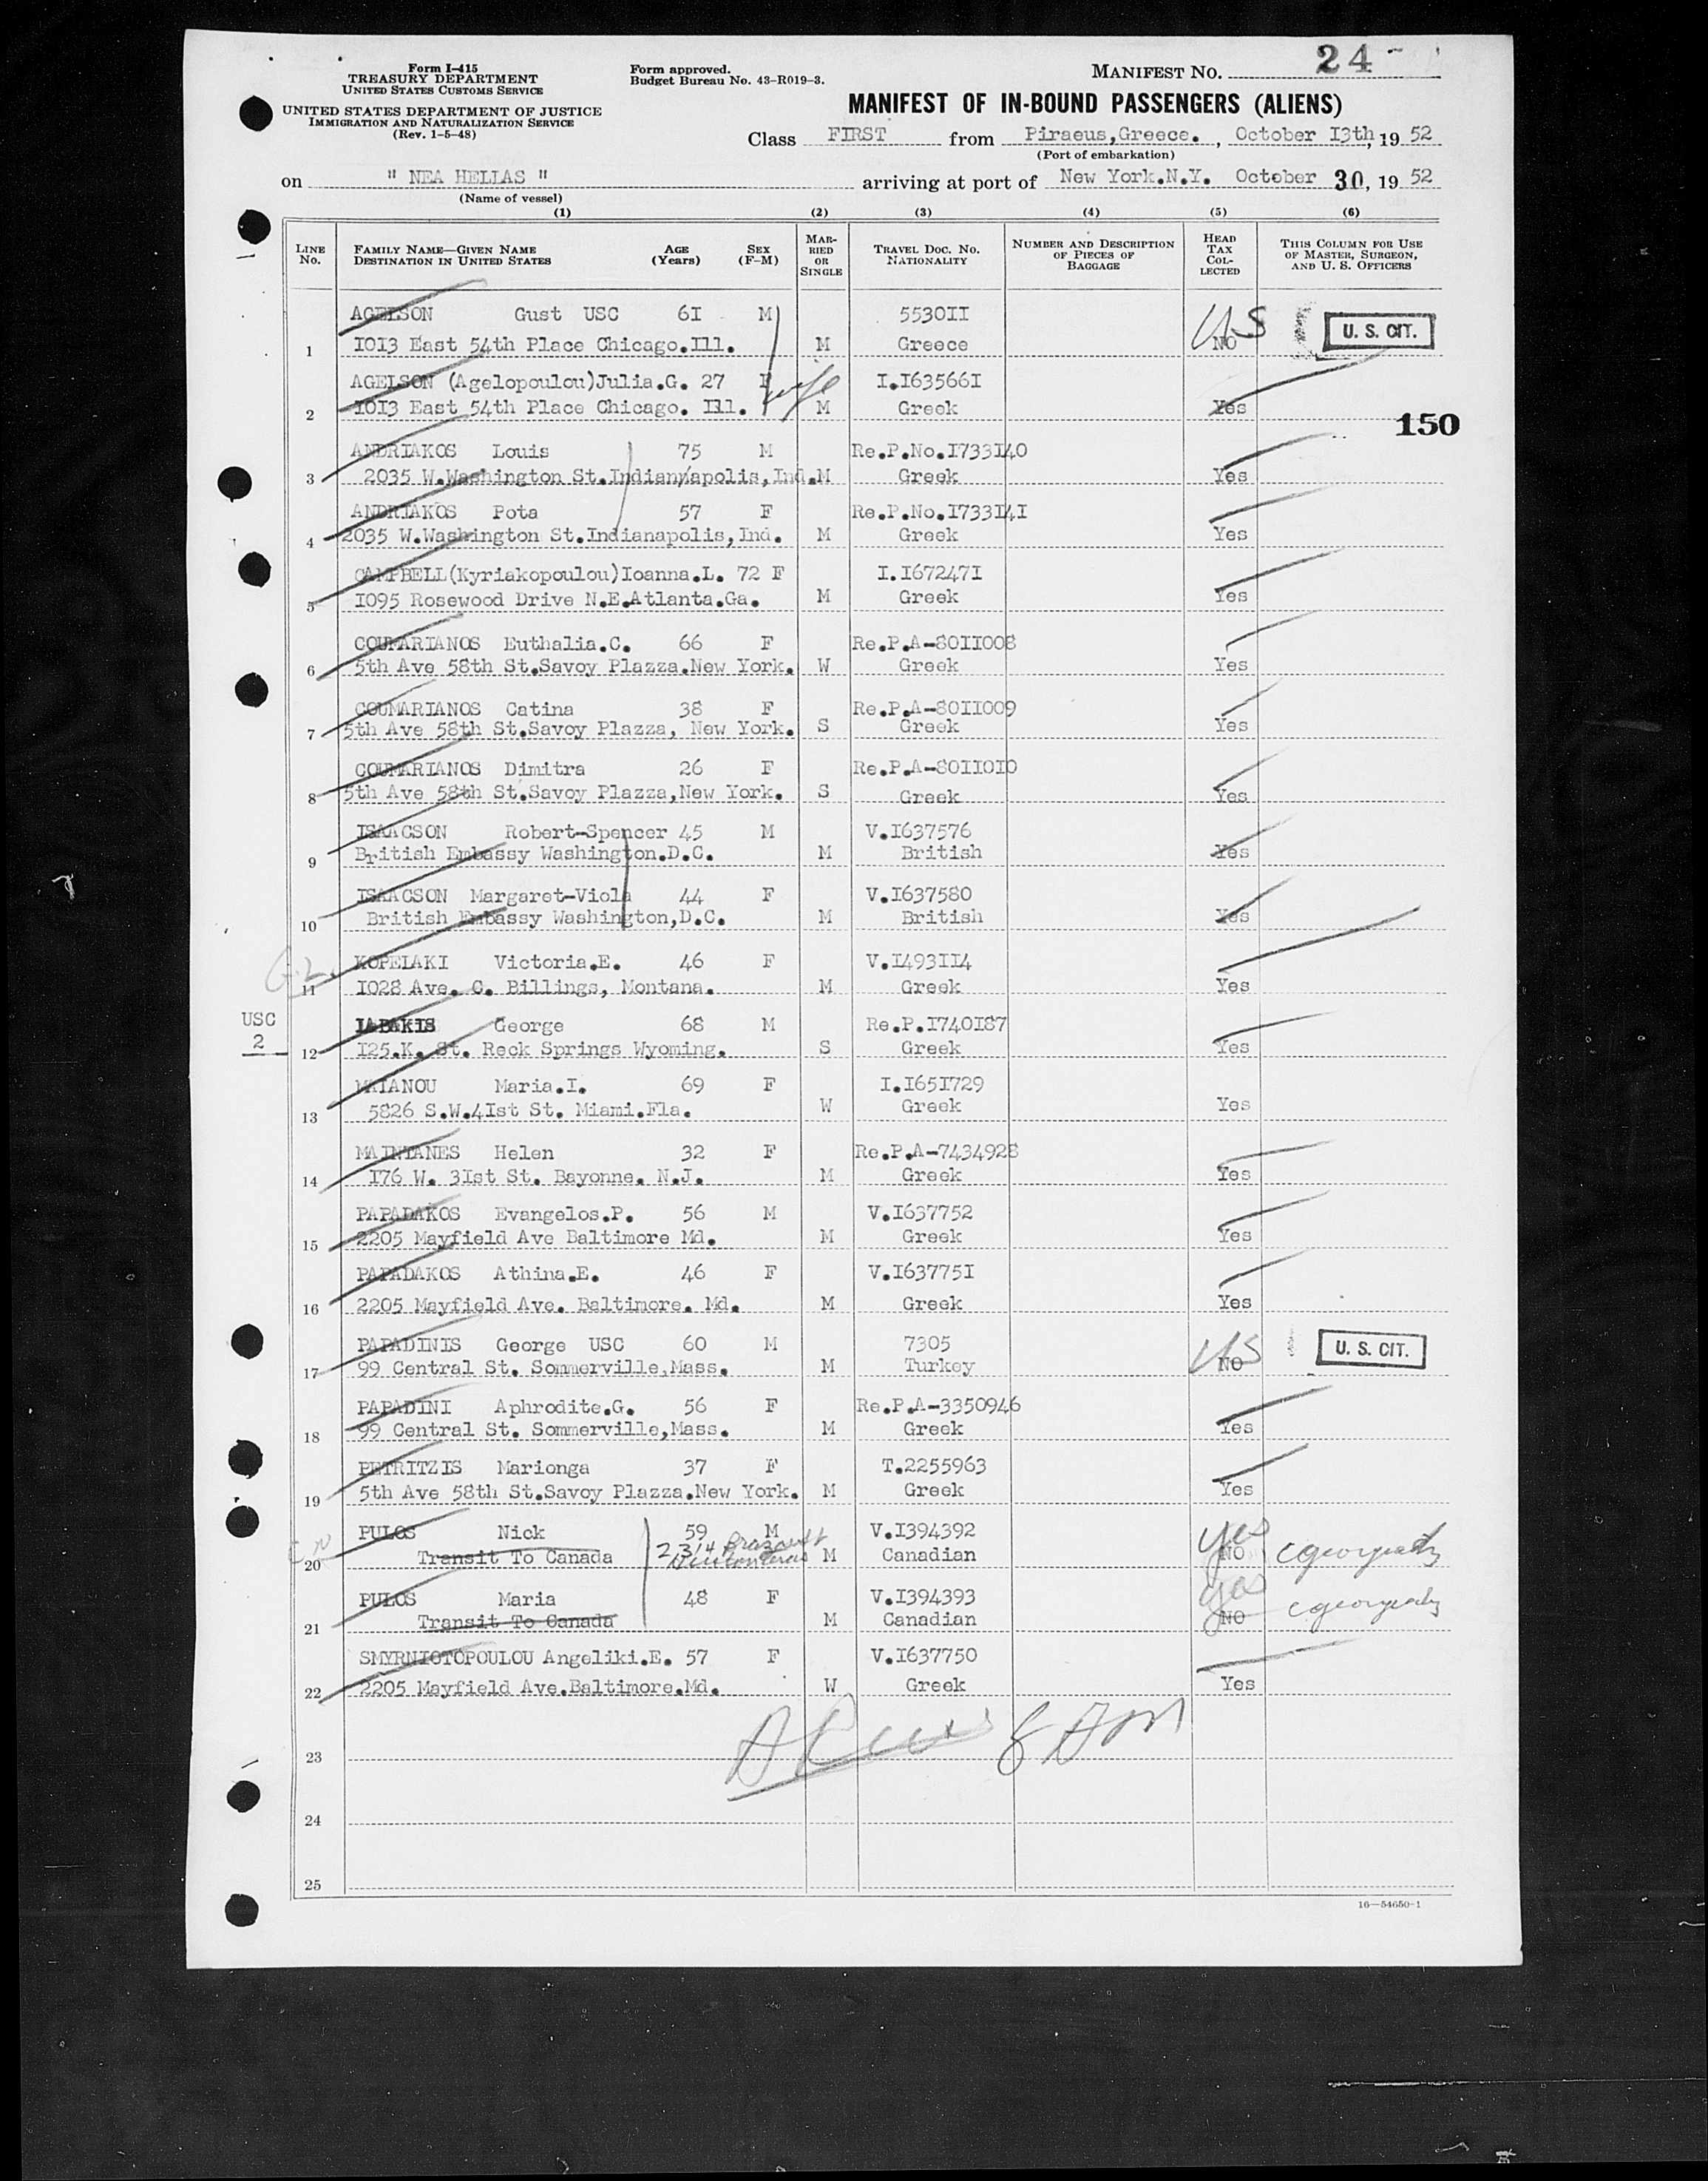 Form I-415
TREASURY DEPARTMENT
UNITED STATES CUSTOMS SERVICE
UNITED STATES DEPARTMENT OF JUSTICE
IMMIGRATION AND NATURALIZATION SERVICE
(Rev. 1-5-48)
Form approved.
Budget Bureau No. 43-R019-3.
MANIFEST NO. 24
MANIFEST OF IN-BOUND PASSENGERS (ALIENS)
Class FIRST from Piraeus,Greece. , October I3th, 19 52
(Port of embarkation)
on " NEA HELLAS " arriving at port of New York.N.Y. October 30, 19 52
(Name of vessel)
(1) (2) (3) (4) (5) (6)
LINE No. FAMILY NAME—GIVEN NAME DESTINATION IN UNITED STATES AGE (Years) SEX (F-M) MARRIED OR SINGLE TRAVEL DOC. NO. NATIONALITY NUMBER AND DESCRIPTION OF PIECES OF BAGGAGE HEAD TAX COLLECTED THIS COLUMN FOR USE OF MASTER, SURGEON, AND U. S. OFFICERS
AGELSON Gust USC 6I M 5530II US U. S. CIT.
1 I0I3 East 54th Place Chicago.Ill. M Greece NO
AGELSON (Agelopoulou)Julia.G. 27 F wife I.I63566I
2 I0I3 East 54th Place Chicago. Ill. M Greek Yes
150
ANDRIAKOS Louis 75 M Re.P.No.I733I40
3 2035 W.Washington St.Indiannapolis,Ind. M Greek Yes
ANDRIAKOS Pota 57 F Re.P.No.I733I4I
4 2035 W.Washington St.Indianapolis,Ind. M Greek Yes
CAMPBELL(Kyriakopoulou)Ioanna.L. 72 F I.I67247I
5 I095 Rosewood Drive N.E.Atlanta.Ga. M Greek Yes
COUMARIANOS Euthalia.C. 66 F Re.P.A-80II008
6 5th Ave 58th St.Savoy Plazza.New York. W Greek Yes
COUMARIANOS Catina 38 F Re.P.A-80II009
7 5th Ave 58th St.Savoy Plazza, New York. S Greek Yes
COUMARIANOS Dimitra 26 F Re.P.A-80II0I0
8 5th Ave 58th St.Savoy Plazza,New York. S Greek Yes
ISAACSON Robert-Spencer 45 M V.I637576
9 British Embassy Washington.D.C. M British Yes
ISAACSON Margaret-Viola 44 F V.I637580
10 British Embassy Washington,D.C. M British Yes
KOPELAKI Victoria.E. 46 F V.I493II4
11 I028 Ave. C. Billings, Montana. M Greek Yes
USC
2
George 68 M Re.P.I740I87
12 I25.K. St. Rock Springs Wyoming. S Greek Yes
MAIANOU Maria.I. 69 F I.I65I729
13 5826 S.W.4Ist St. Miami.Fla. W Greek Yes
MAINTANES Helen 32 F Re.P.A-7434928
14 I76 W. 3Ist St. Bayonne. N.J. M Greek Yes
PAPADAKOS Evangelos.P. 56 M V.I637752
15 2205 Mayfield Ave Baltimore Md. M Greek Yes
PAPADAKOS Athina.E. 46 F V.I63775I
16 2205 Mayfield Ave. Baltimore. Md. M Greek Yes
PAPADINIS George USC 60 M 7305 US U. S. CIT.
17 99 Central St. Sommerville,Mass. M Turkey NO
PAPADINI Aphrodite.G. 56 F Re.P.A-3350946
18 99 Central St. Sommerville,Mass. M Greek Yes
PETRITZIS Marionga 37 F T.2255963
19 5th Ave 58th St.Savoy Plazza.New York. M Greek Yes
PULOS Nick 59 M V.I394392 yes
20 Transit To Canada 2314 M Canadian NO
PULOS Maria 48 F V.I394393 yes
21 Transit To Canada M Canadian NO
SMYRNIOTOPOULOU Angeliki.E. 57 F V.I637750
22 2205 Mayfield Ave.Baltimore.Md. W Greek Yes
23
24
25
16—54650-1